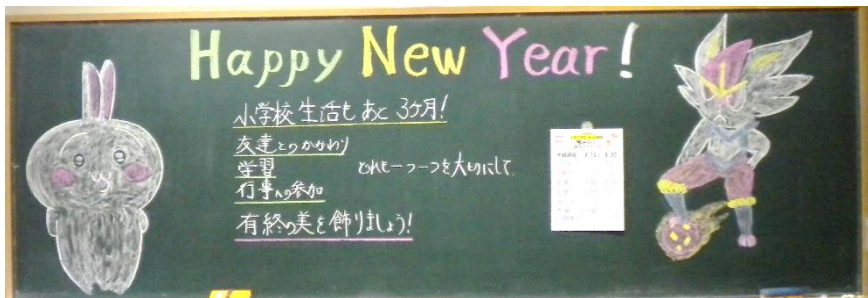 Happy New Year!
小学校生活もあと3ヶ月!
友達とのかかわり
学習
どれも一つ一つを大切にして
行事への参加
有終の美を飾りましょう!